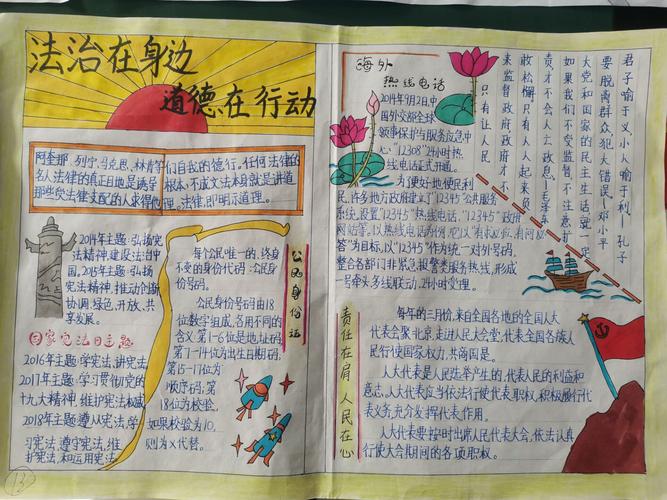 法治在身边
道德在行动
阿奎那、列宁、马克思、林肯等们自我的德行。任何法律的
名人法律的真正目地是诱导 根本,不成文法本身就是讲道
那些受法律支配的人求得他 理。法律,即明示道理。
2014年主题:弘扬宪
法精神,建设法治中
国。2015年主题:弘扬
宪法精神,推动创新
协调,绿色,开放、共
享发展。
国家宪法日主题
2016年主题:学宪法,讲宪法
2017年主题:学习贯彻党的
十九大精神,维护宪法权威
2018年主题 遵从宪法,学
习宪法、遵守宪法、维
护宪法、和运用宪法
13
每个公民唯一的、终身
不变的身份代码:公民身
份号码。
公民身份号码由18
位数字组成,各用不同的
含义。第1-6位是地址码;
第7-14位为出生日期码;
第15-17位为
顺序码,第
18位为校验。
如果校验为10,
则为X代替。
公民身份证
海外
热线电话
2014年9月2日中
国外交部全球
领事保护与服务应急中
心"12308"24小时热
线电话正式开通。
为了更好地便民利
民,许多地方政府建立了"12345"公共服务
系统,设置"12345"热线电话,"12345"政府
网站等。以热线电话为例,它以"有求必应,有问必
答"为目标,以"12345"作为统一对外号码,
整合各部门非紧急、报警类服务热线,形成
一号牵头多线联动,24小时受理。
君子喻于义,小人喻于利—孔子
要脱离群众犯大错误—邓小平
大党和国家的民主生活就一定
如果我们不受监督不注意扩
责才不会人亡政息—毛泽东
敢松懈只有人人起来负
来监督政府政府才不
只有让人民
责任在肩 人民在心
每年的三月份,来自全国各地的全国人大
代表会聚北京,走进人民大会堂,代表全国各族人
民行使国家权力,共商国是。
人大代表是人民选举产生的,代表人民的利益和
意志。人大代表应当依法行使代表职权,积极履行代
表义务,充分发挥代表作用。
人大代表要按时出席人民代表大会,依法认真
行使大会期间的各项职权。